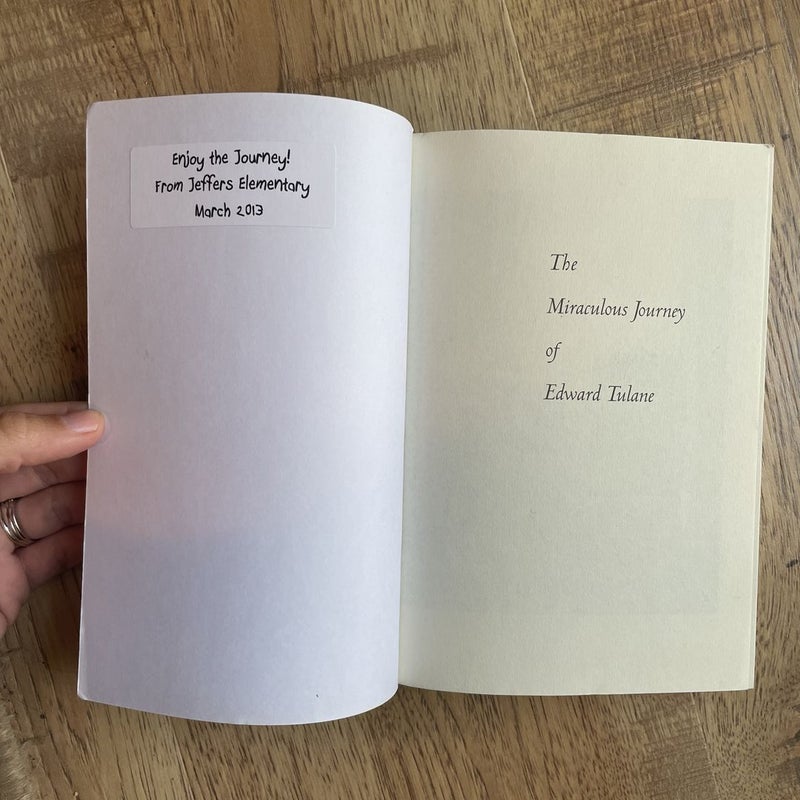 Enjoy the Journey!
From Jeffers Elementary
March 2013
The
Miraculous Journey
of
Edward Tulane